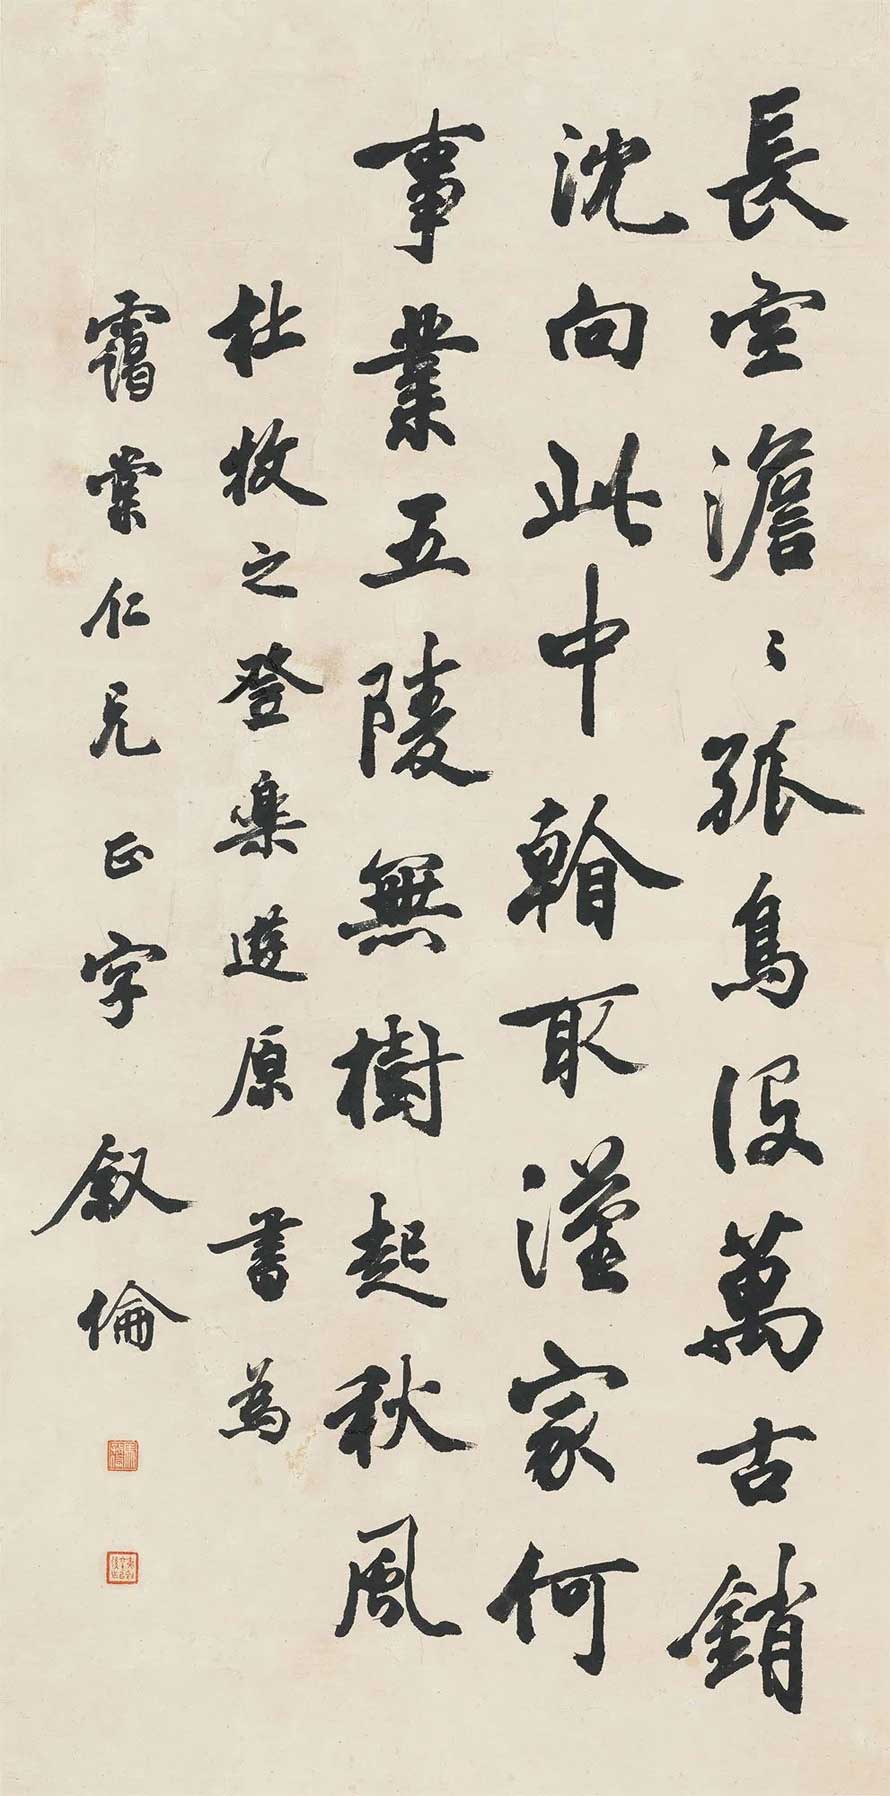 長空澹〻孤鳥没萬古銷
沈向此中斡取漢家何
事業五陵無樹起秋風
杜牧之登樂遊原 書為
靄棠仁兄正字 叙倫